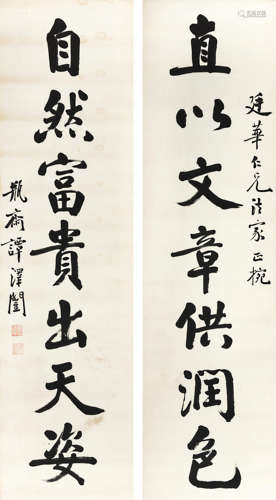 廷華仁兄法家正椀
直以文章供潤色
自然富貴出天姿
瓶齋譚澤闓